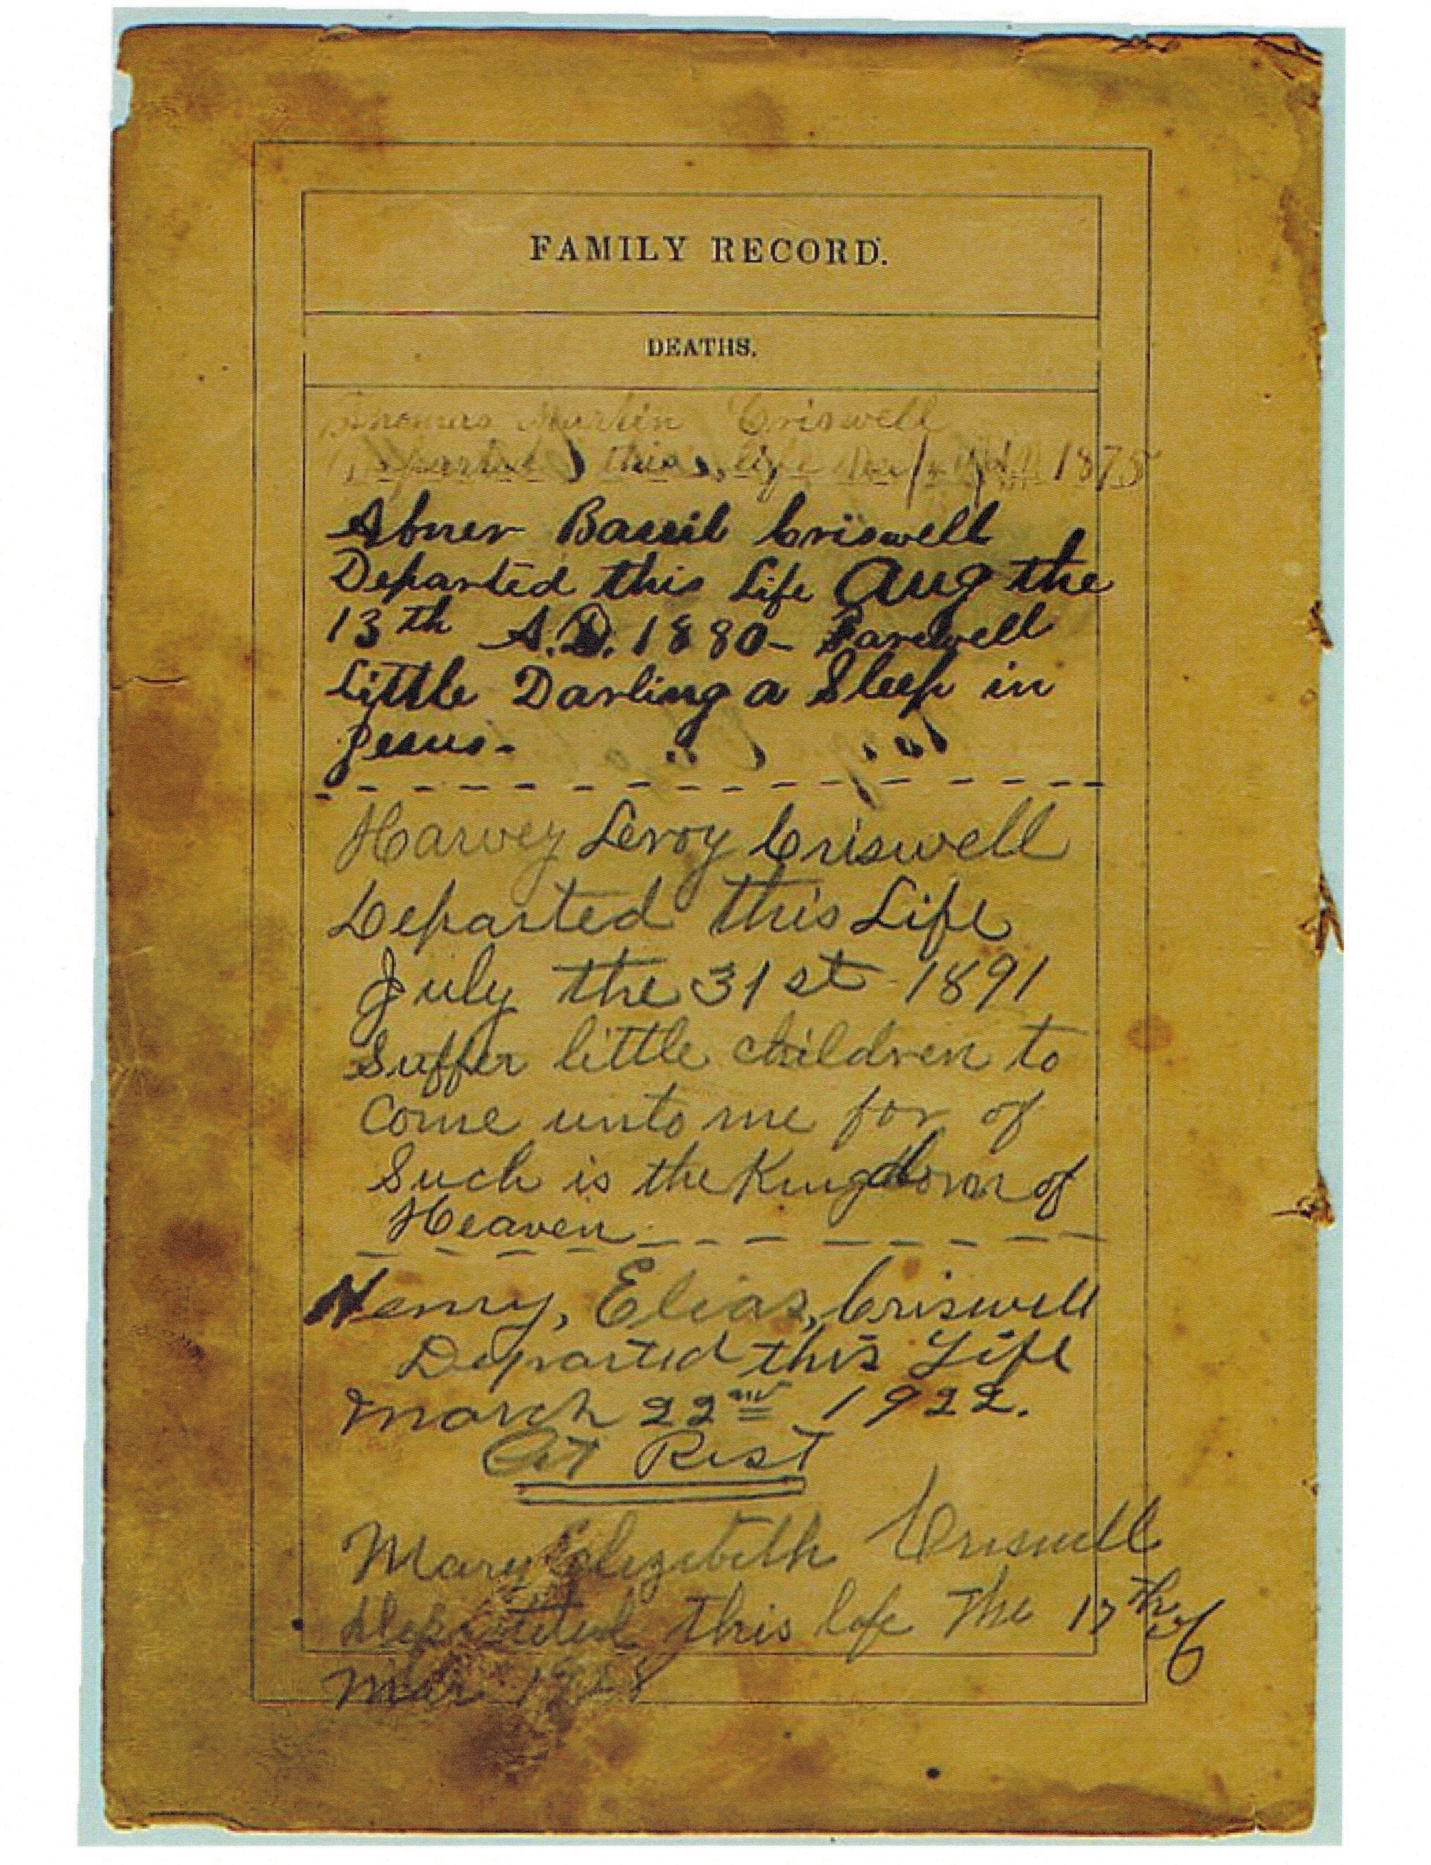 FAMILY RECORD.
DEATHS.
Thomas Martin Criswell
Departed this life 1875
Abner Bassil Criswell
Departed this Life Aug the
13th A.D. 1880- Farewell
Little Darling a Sleep in
Jesus-
Harvey Leroy Criswell
Departed this Life
July the 31st 1891
Suffer little children to
come unto me for of
Such is the Kingdom of
Heaven
Henry, Elias, Criswell
Departed this Life
March 22nd 1922.
At Rest
Mary Elizabeth Criswell
Departed this life The 17th of
Mar